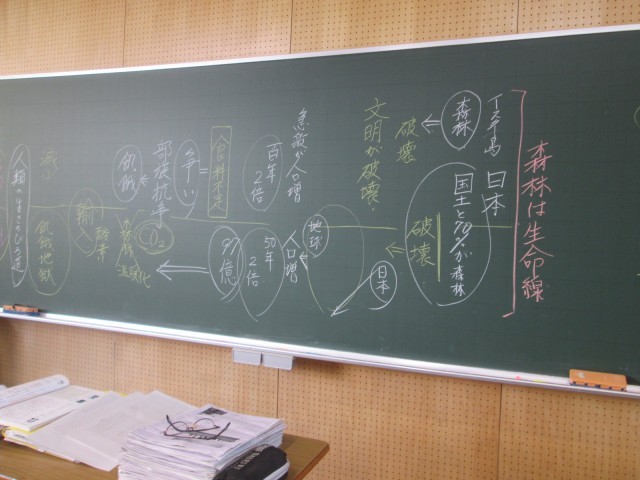 森林は生命線
イースター島
森林
破壊
文明が破壊
急激な人口増
百年
2倍
食料不足
争い
部族抗争
飢餓
減少
日本
国土の70%が森林
破壊
日本
地球
人口増
50年
2倍
91億
CO2
温暖化
酸素
輸入
飢餓地獄